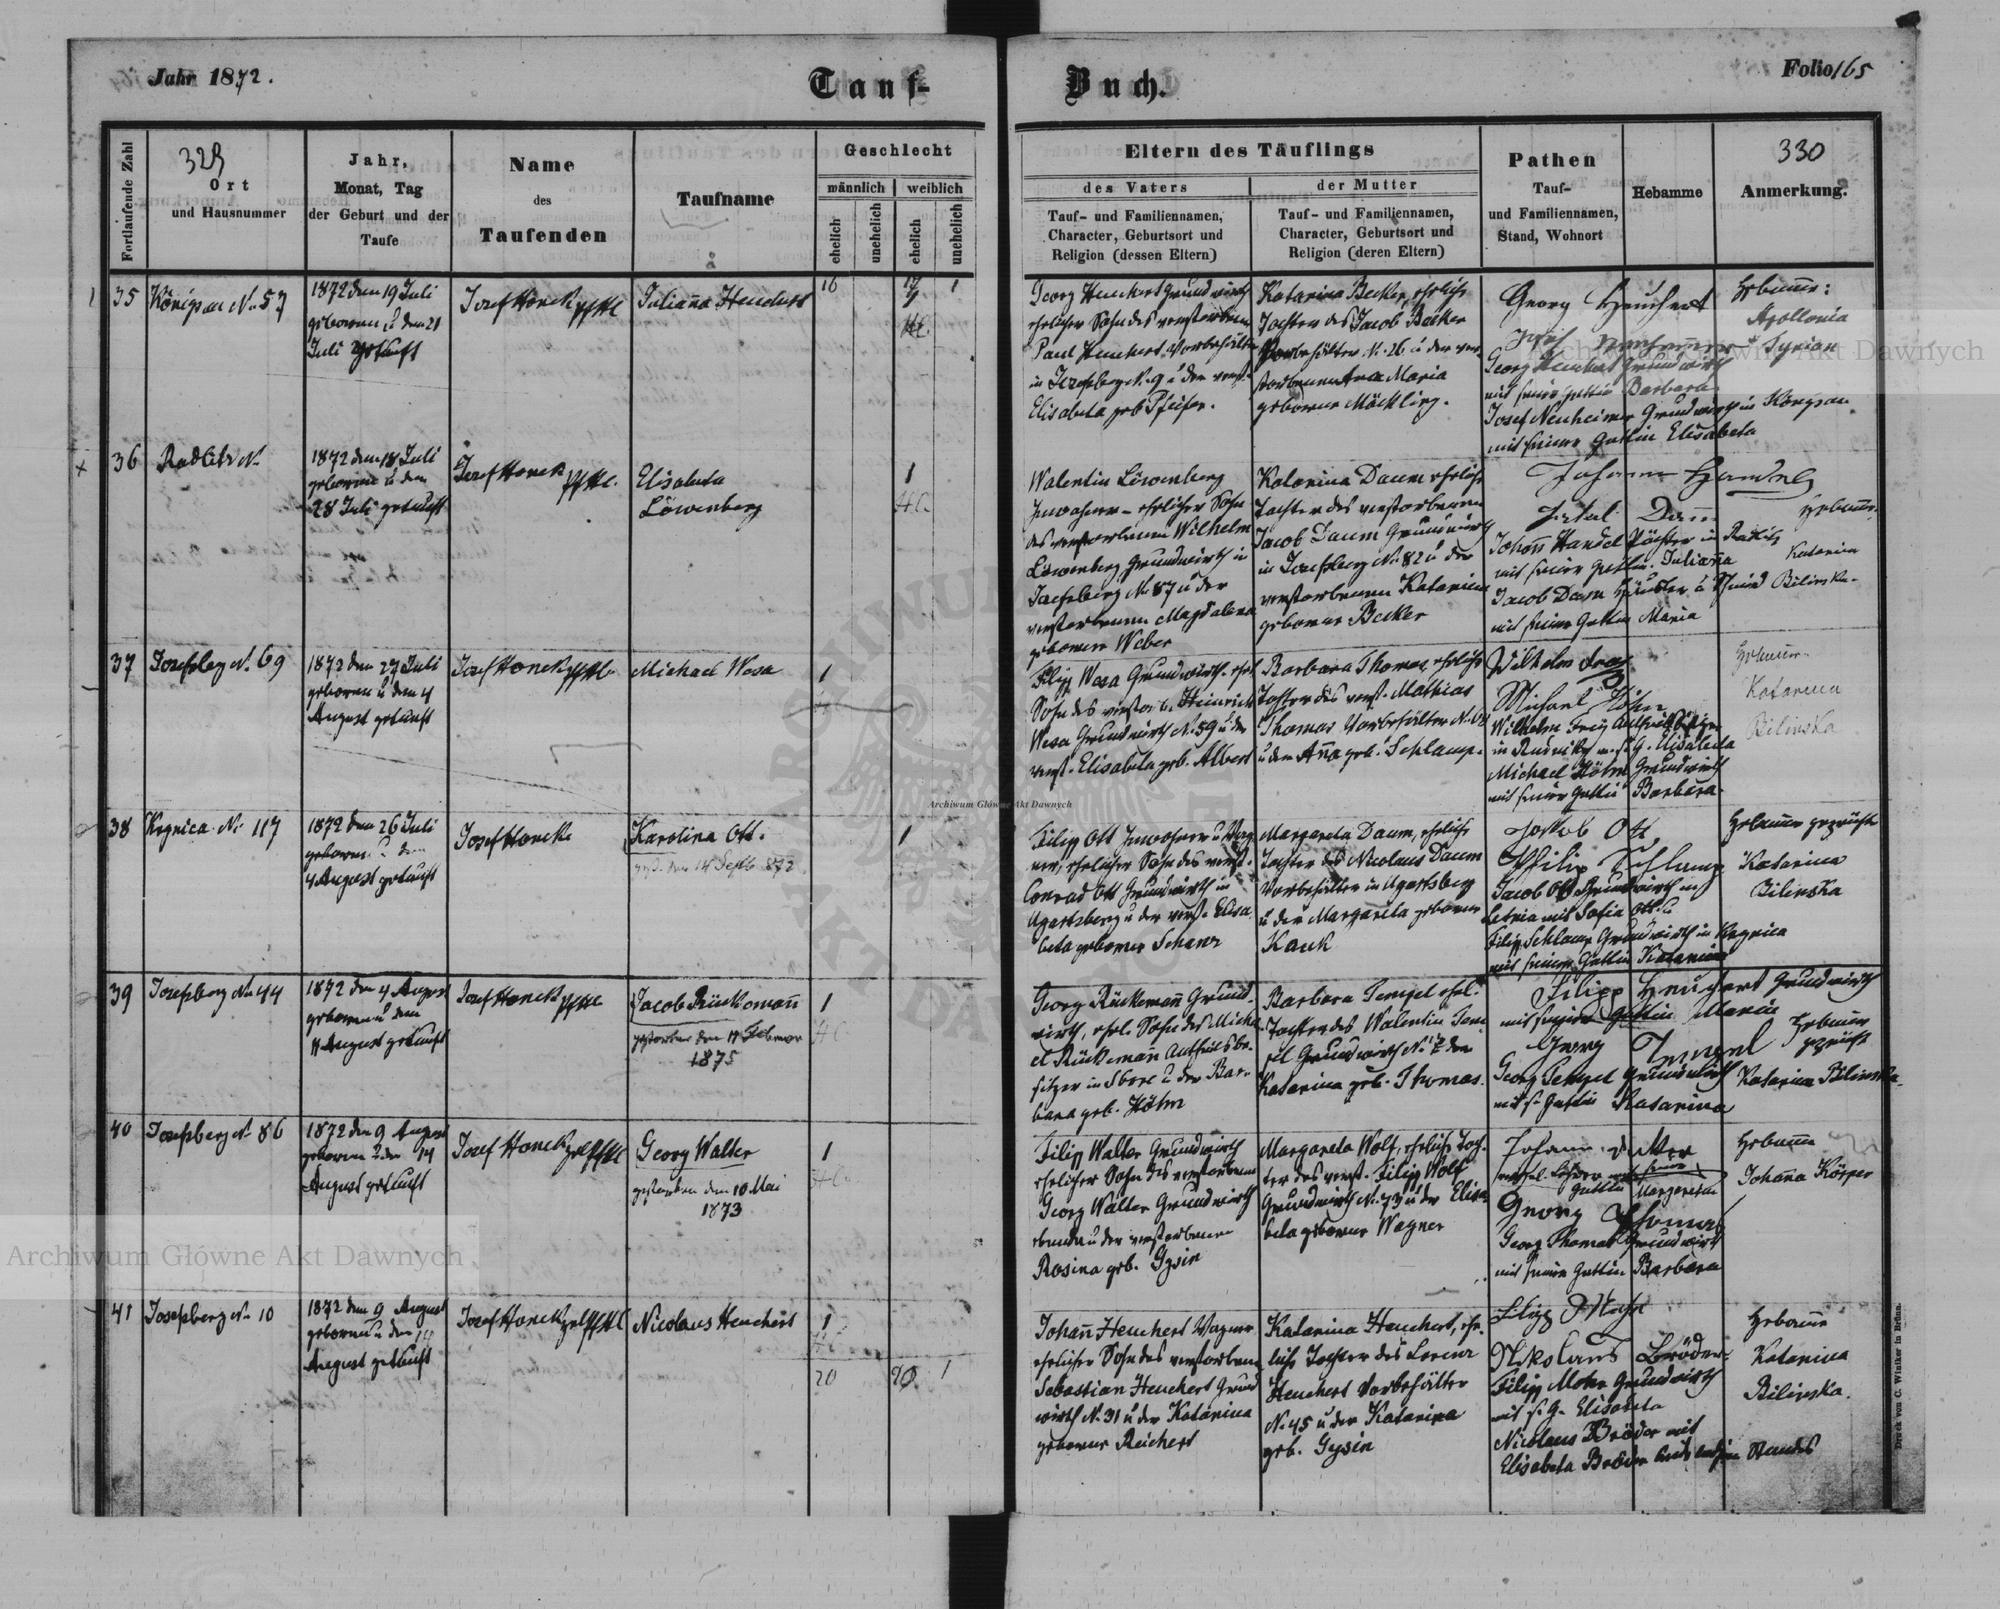 Jahr 1872.
Tauf-
Buch.
Folio 165
Fortlaufende Zahl
329
Ort
und Hausnummer
Jahr,
Monat, Tag
der Geburt und der
Taufe
Name
des
Taufenden
Taufname
Geschlecht
männlich
weiblich
ehelich
unehelich
ehelich
unehelich
Eltern des Täuflings
des Vaters
der Mutter
Tauf- und Familiennamen,
Character, Geburtsort und
Religion (dessen Eltern)
Tauf- und Familiennamen,
Character, Geburtsort und
Religion (deren Eltern)
Pathen
Tauf-
und Familiennamen,
Stand, Wohnort
Hebamme
330
Anmerkung.
35
Königsau No 57
1872 den 19 Juli
geboren u den 21
Juli getauft
Josef Honek
Julianna Heuchert
16
17
1
Georg Heuchert Grundwirth
ehelicher Sohn des verstorbenen
Paul Heuchert Vorbehälter
in Josefsberg No 9 u der verst.
Elisabeta geb Pfeifer.
Katarina Becker, eheliche
Tochter des Jacob Becker
Vorbehälter No 26 u der ver-
storbenen Anna Maria
geborene Möckling.
Georg Heuchert
Georg Heuchert Grundwirth
mit seiner Gattin Barbara
Josef Neuheimer Grundwirth in Königsau
mit seiner Gattin Elisabeta
Hebamme:
Apollonia
36
Radlitz No
1872 den 18 Juli
geboren u den
28 Juli getauft
Josef Honek
Elisabeta
Löwenberg
1
Walentin Löwenberg
Inwohner - ehelicher Sohn
des verstorbenen Wilhelm
Löwenberg Grundwirth in
Josefsberg No 87 u der
verstorbenen Magdalena
geborene Weber
Katarina Daum eheliche
Tochter des verstorbenen
Jacob Daum Grundwirth
in Josefsberg No 82 u der
verstorbenen Katarina
geborene Becker
Johann Handel
Johann Handel Pächter in Radlitz
mit seiner Gattin Julianna
Jacob Daum
mit seiner Gattin Maria
Hebamme
Katarina
Bilinska
37
Josefsberg No 69
1872 den 27 Juli
geboren u den 4
August getauft
Josef Honek
Michael Wesa
1
Filip Wesa Grundwirth ehel
Sohn des verstorb. Heinrich
Wesa Grundwirth No 59 u der
verst. Elisabeta geb. Albert
Barbara Thomas eheliche
Tochter des verst. Mathias
Thomas Vorbehälter
u der Anna geb. Schlamp.
Michael Höhn
Michael Höhn Grundwirth
mit seiner Gattin Barbara.
Hebamme
Katarina
Bilinska
38
Krynica No 117
1872 den 26 Juli
geboren u den
4 August getauft
Josef Honek
Karolina Ott.
gest. den 14 Septb 872
1
Filip Ott Inwohner u Wag
ner, ehelicher Sohn des verst.
Conrad Ott Grundwirth in
Ugartsberg u der verst. Elisa
beta geborene Schanz
Margareta Daum, eheliche
Tochter des Nicolaus Daum
Vorbehälter in Ugartsberg
u der Margareta geborene
Kauk
Jakob Ott
Philip Schlamp
Jacob Ott Grundwirth in
Letnia mit Sofia Ott u
Filip Schlamp Grundwirth in Krynica
mit seiner Gattin Katarina
Hebamme geprüft
Katarina
Bilinska
39
Josefsberg No 44
1872 den 4 August
geboren u den
11 August getauft
Josef Honek
Jacob Rückemann
gestorben den 17 Februar
1875
1
Georg Rückemann Grund-
wirth, ehel. Sohn des Micha
el Rückemann Antheilsbe-
sitzer in Sbore u der Bar-
bara geb. Höhn
Barbara Tempel ehel.
Tochter des Walentin Tem
pel Grundwirth No 7 u der
Katarina geb. Thomas.
Filipp Heuchert Grundwirth
mit seiner Gattin Maria
Georg Tempel
Georg Tempel Grundwirth
mit s. Gattin Katarina
Hebamme
geprüft
Katarina Bilinska
40
Josefsberg No 86
1872 den 9 August
geboren u den 14
August getauft
Josef Honek
Georg Walter
gestorben den 10 Mai
1873
1
Filip Walter Grundwirth
ehelicher Sohn des verstorbenen
Georg Walter Grundwirth
ebenda u der verstorbenen
Rosina geb. Gysin
Margareta Wolf, eheliche Toch-
ter des verst. Filipp Wolf
Grundwirth No 73 u der Elisa
beta geborene Wagner
Gattin Margareta
Georg Thomas
Georg Thomas Grundwirth
mit seiner Gattin Barbara
Hebamme
Johanna Körper
41
Josefsberg No 10
1872 den 9 August
geboren u den 14
August getauft
Josef Honek
Nicolaus Heuchert
1
20
20
1
Johann Heuchert Wagner
ehelicher Sohn des verstorbenen
Sebastian Heuchert Grund
wirth No 31 u der Katarina
geborene Reichert
Katarina Heuchert, ehe-
liche Tochter des Lorenz
Heuchert Vorbehälter
No 45 u der Katarina
geb. Gysin
Nikolaus Bröder
Filipp Mohr Grundwirth
mit s. G. Elisabeta
Nicolaus Bröder mit
Elisabeta Bröder beide ledigen Standes
Hebamme
Katarina
Bilinska.
Druck von C. Winiker in Brünn.
Archiwum Główne Akt Dawnych
Archiwum Główne Akt Dawnych
Archiwum Główne Akt Dawnych